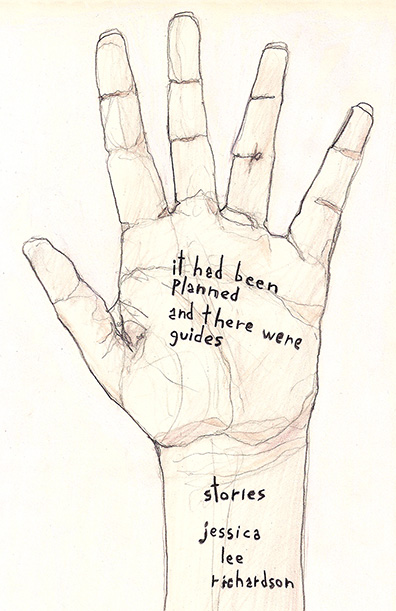 it had been
planned
and there were
guides
stories
jessica
lee
richardson